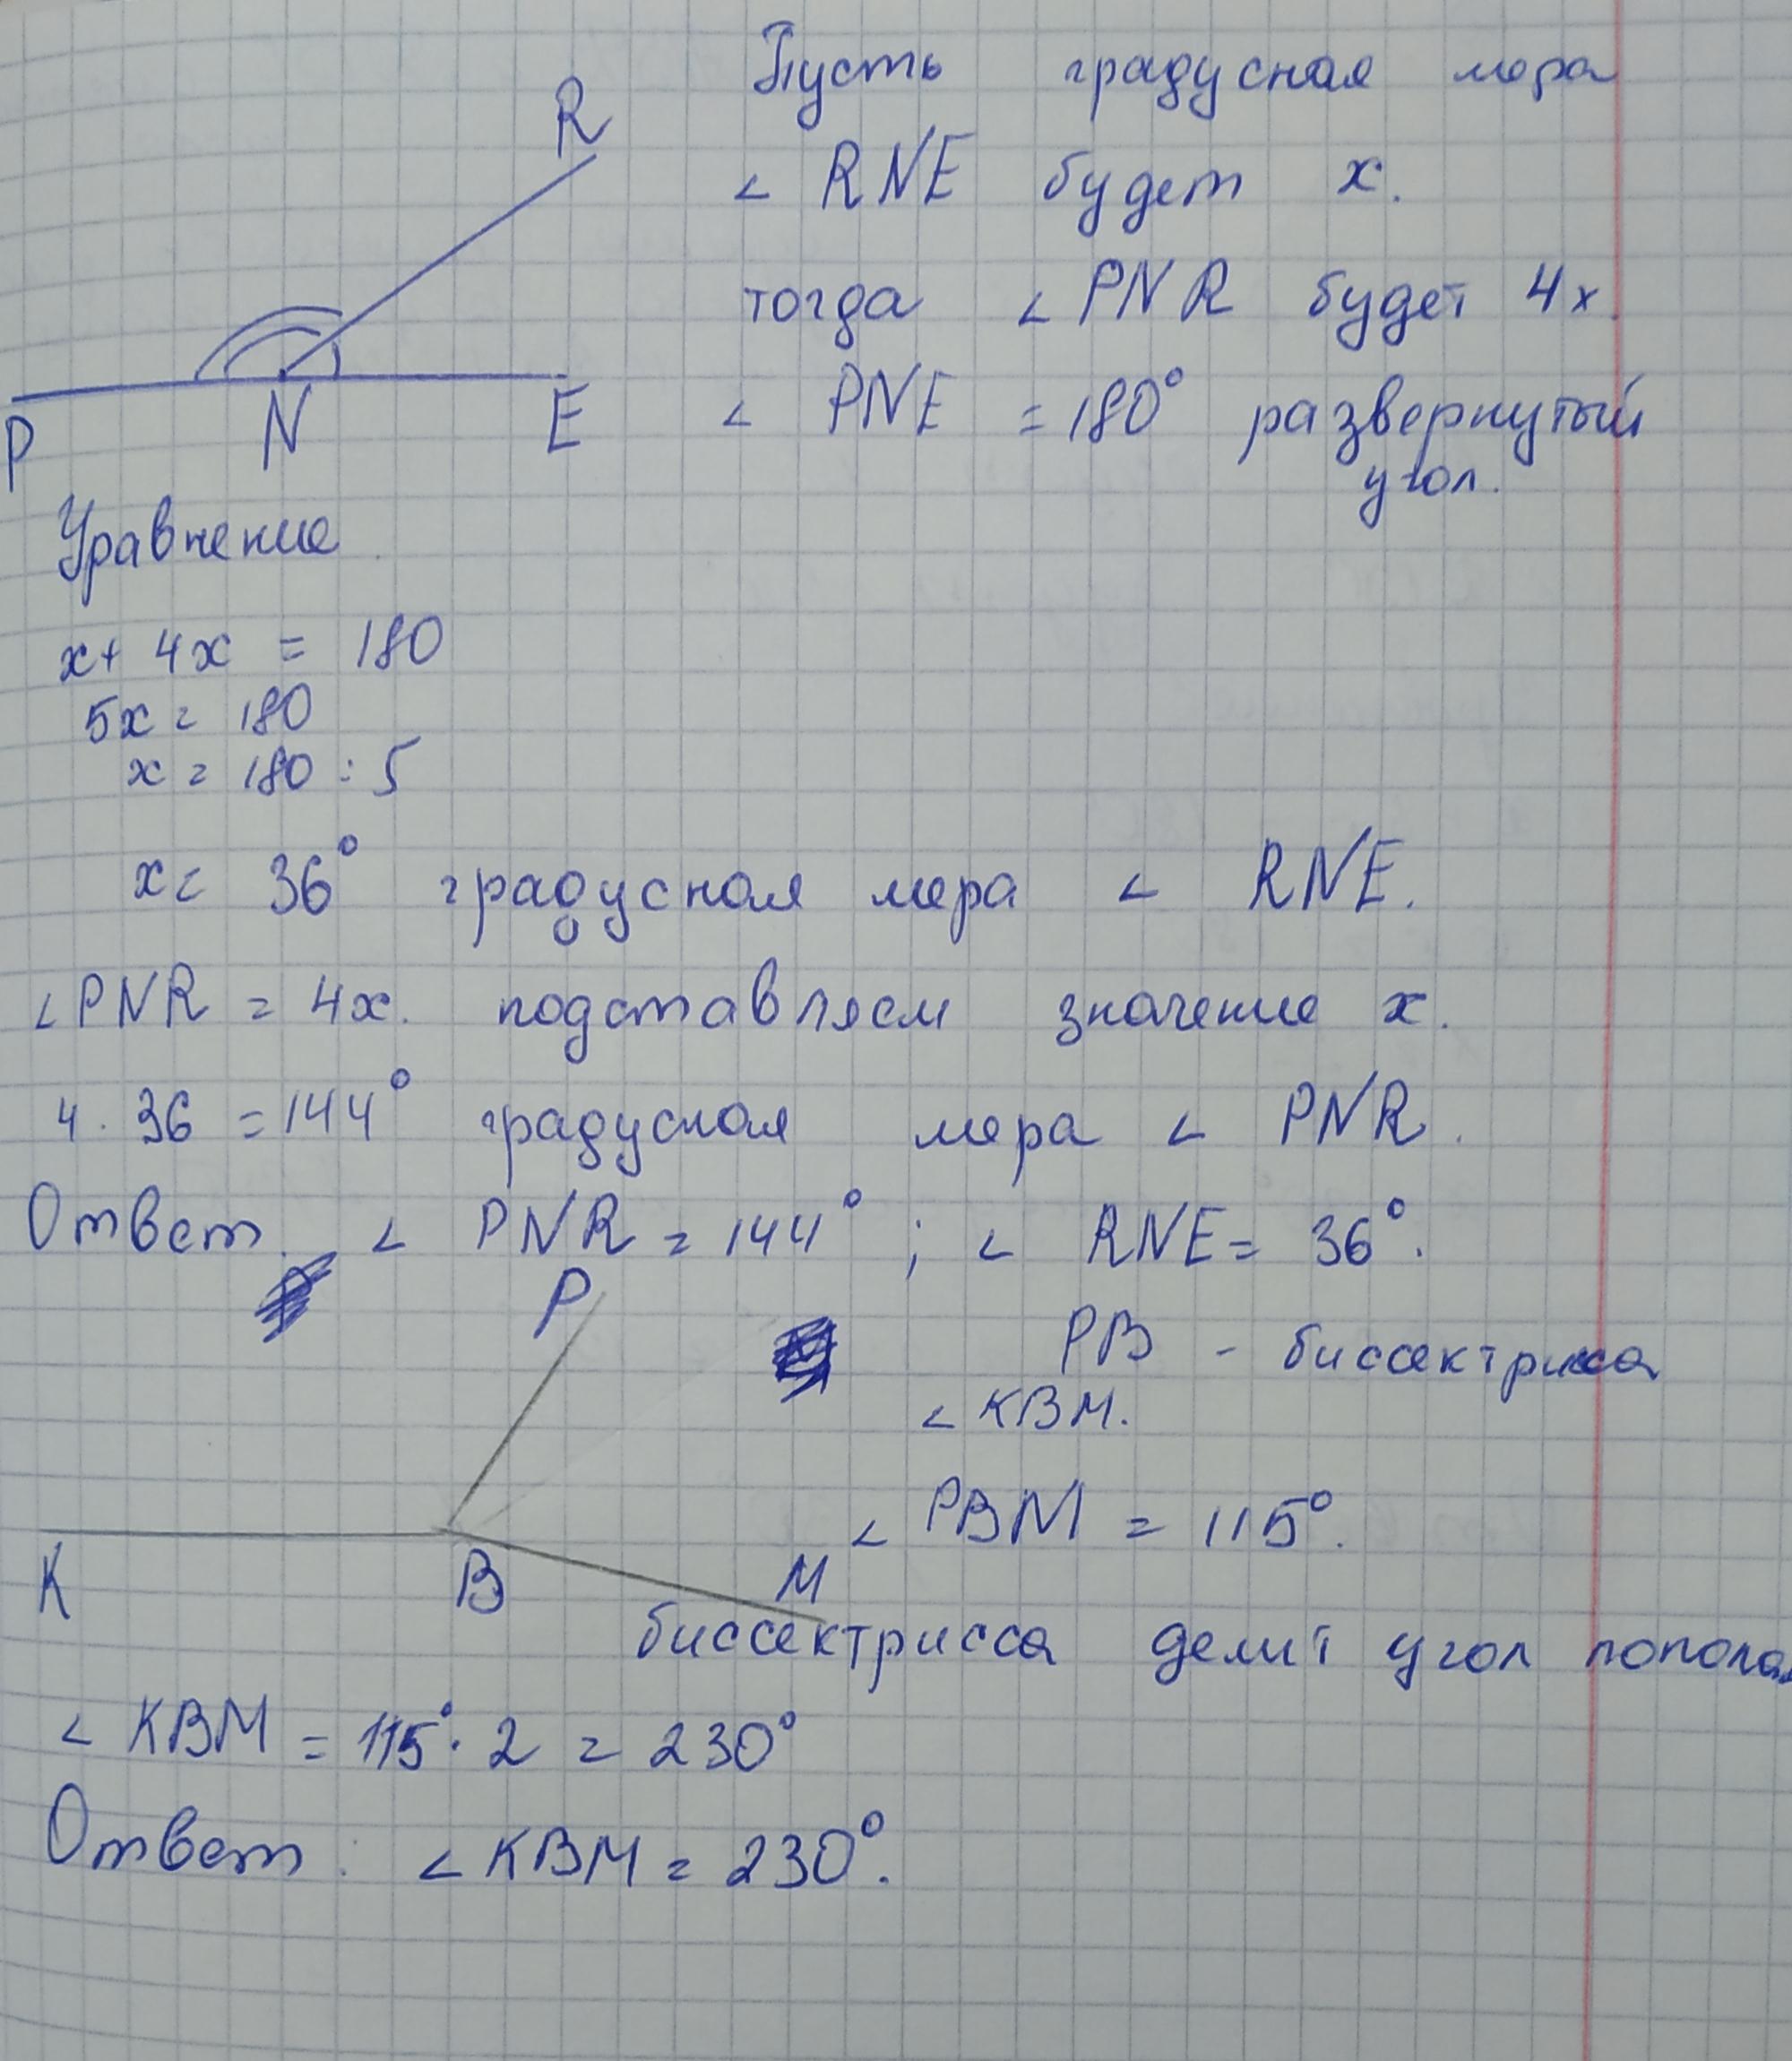 R
Пусть градусная мера
< RNE будет x.
тогда < PNR будет 4x.
P N E
< PNE = 180° развернутый
угол.
Уравнение
x + 4x = 180
5x = 180
x = 180 : 5
x = 36° градусная мера < RNE.
< PNR = 4x. подставляем значение x.
4 · 36 = 144° градусная мера < PNR.
Ответ. < PNR = 144° ; < RNE = 36°.
P
PB - биссектриса
< KBM.
< PBM = 115°.
K B M
биссектрисса делит угол попола
< KBM = 115° · 2 = 230°
Ответ: < KBM = 230°.